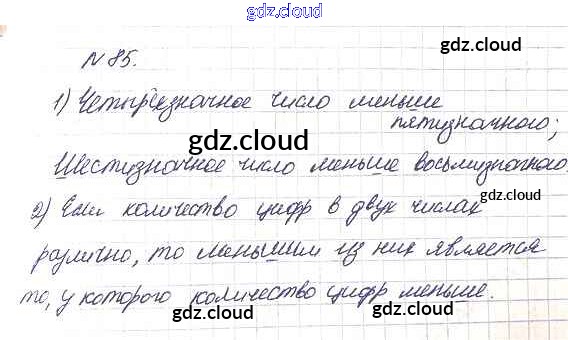 gdz.cloud
gdz.cloud
N 85.
1) Четырёхзначное число меньше
пятизначного;
gdz.cloud
gdz.cloud
Шестизначное число меньше восьмизначного.
gdz.cloud
2) Если количество цифр в двух числах
различно, то меньшим из них является
то, у которого количество цифр меньше.
gdz.cloud
gdz.cloud